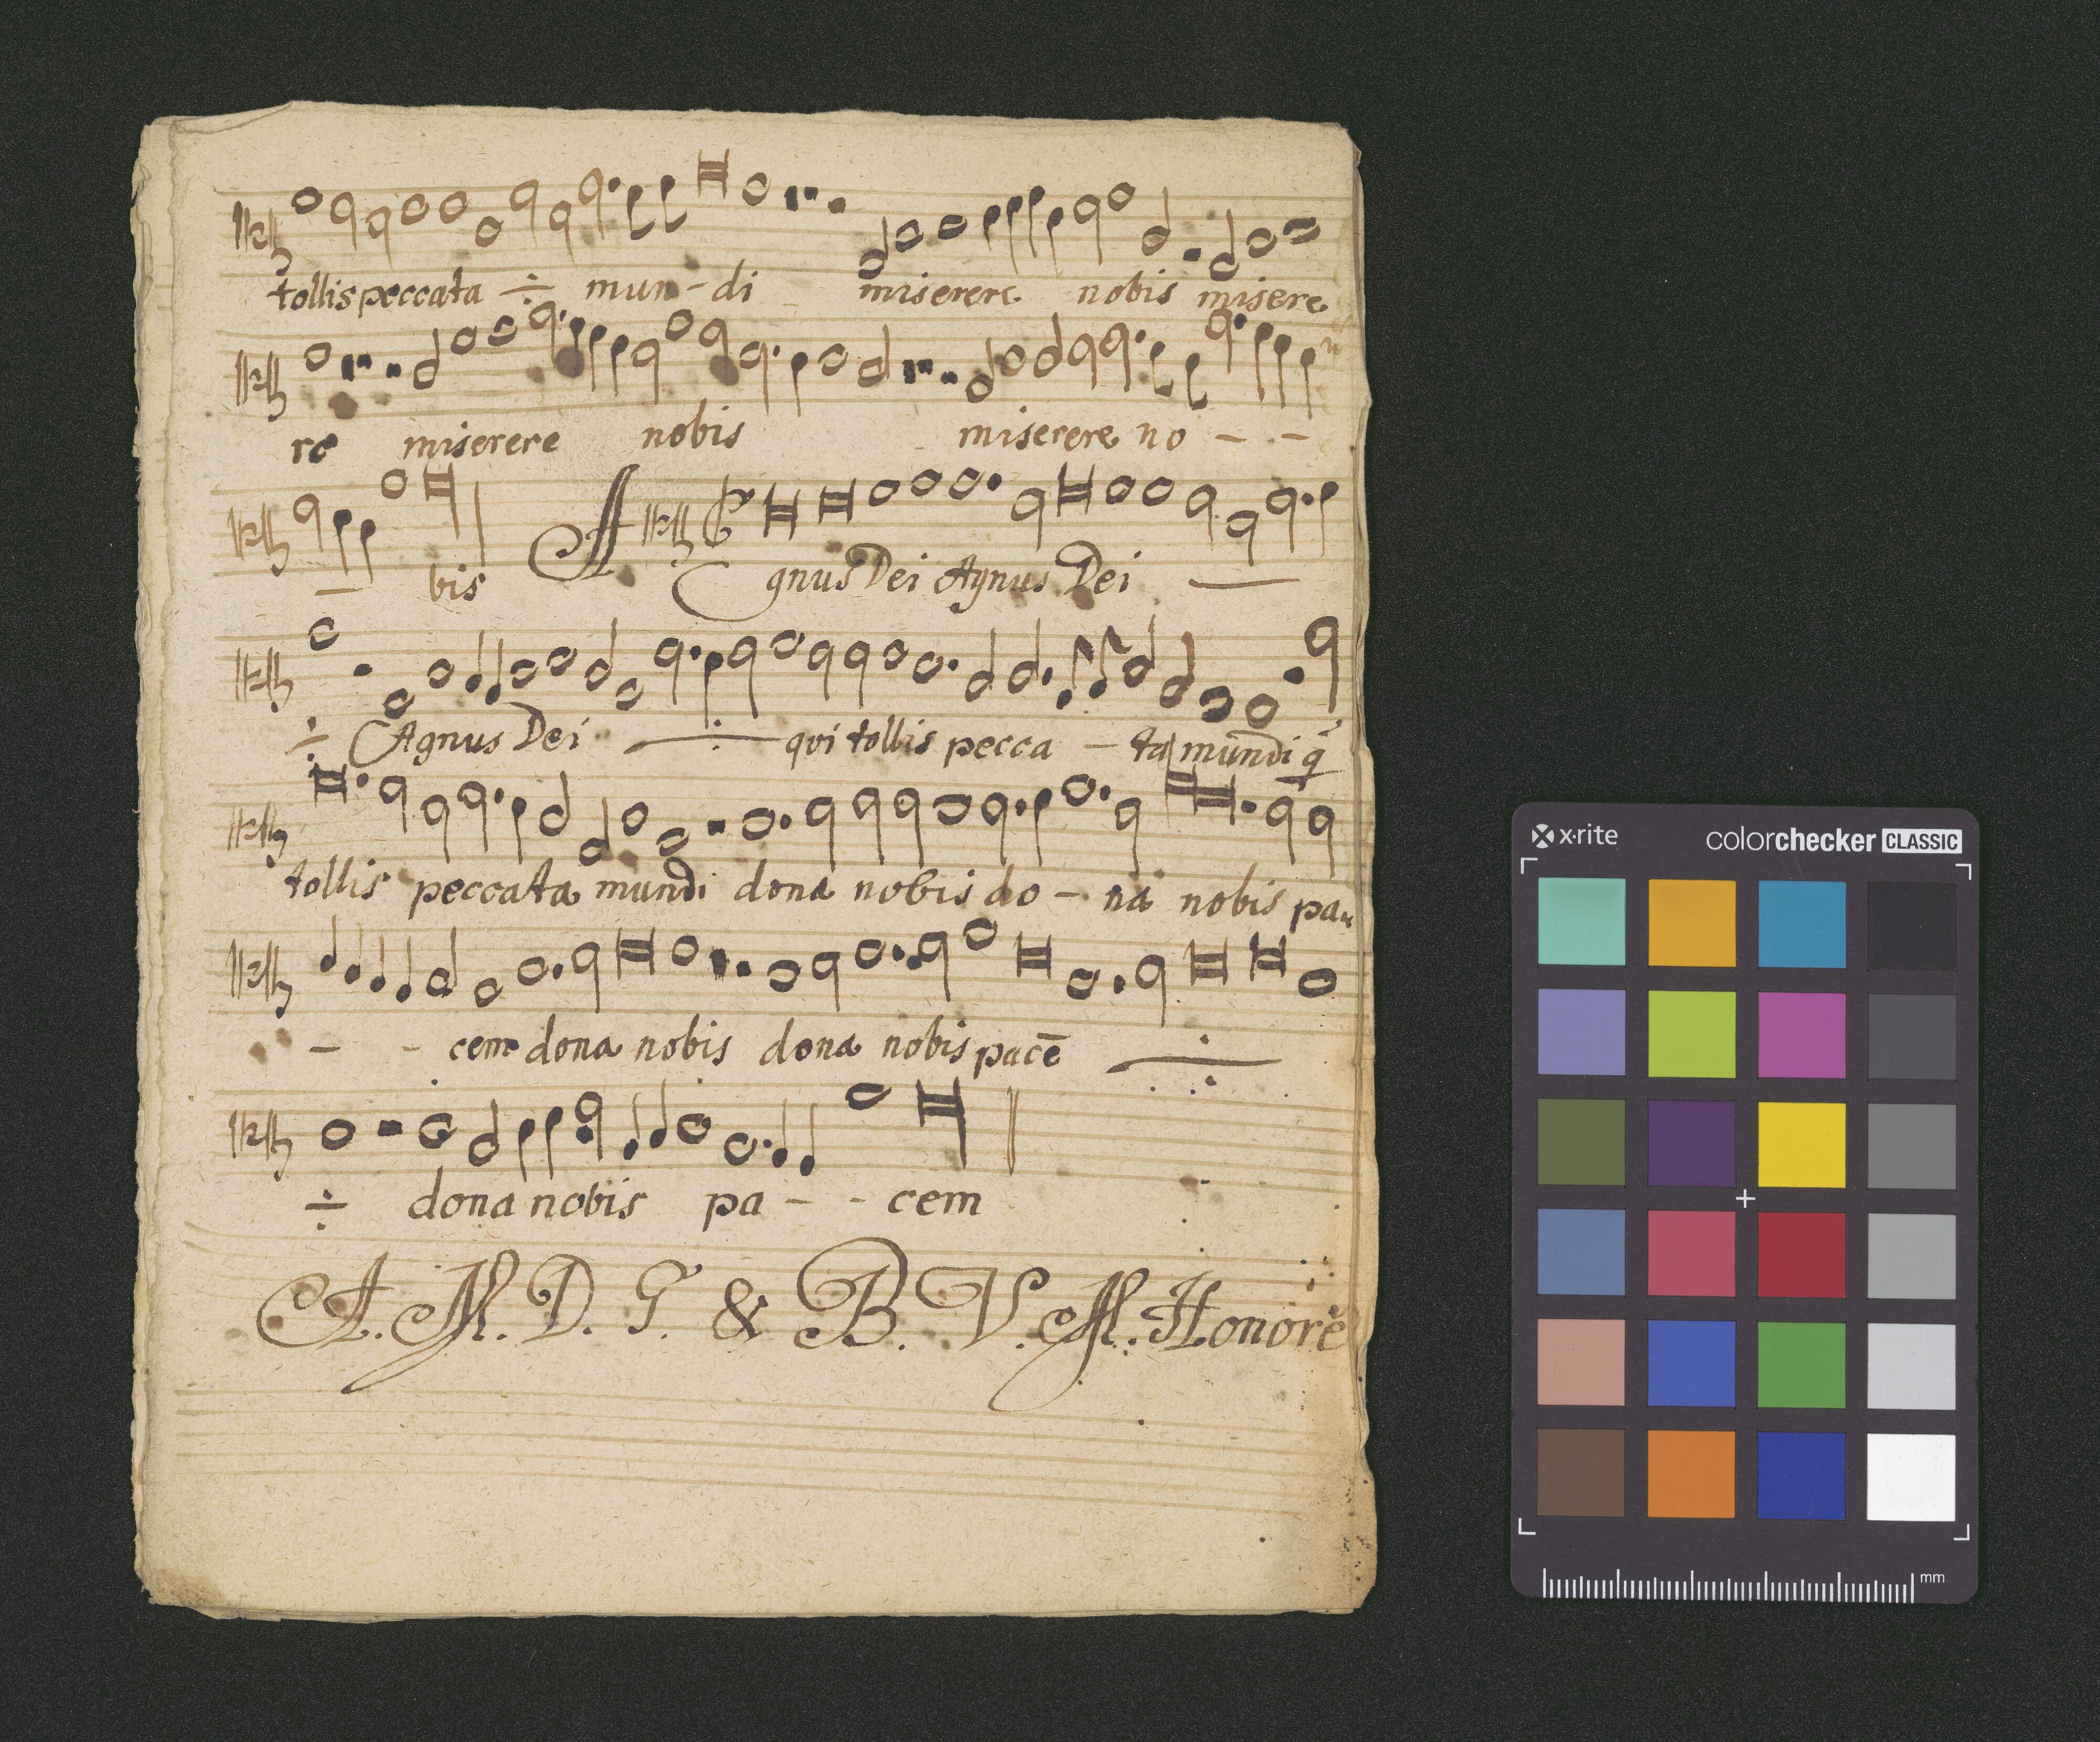 tollis peccata ÷ mun - di miserere nobis misere
re miserere nobis miserere no - -
- bis Agnus Dei Agnus Dei
÷ Agnus Dei ÷ qui tollis pecca - ta mundi q̃
tollis peccata mundi dona nobis do - na nobis pa
- - cem dona nobis dona nobis pacē ÷
÷ dona nobis pa - - cem
A. M. D. G. & B. V. M. Honorē
x·rite colorchecker CLASSIC
mm